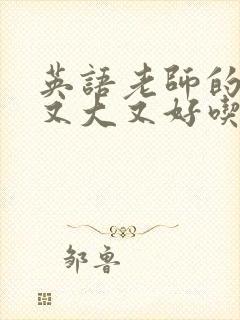 英語老師的
又大又好喫
邹鲁